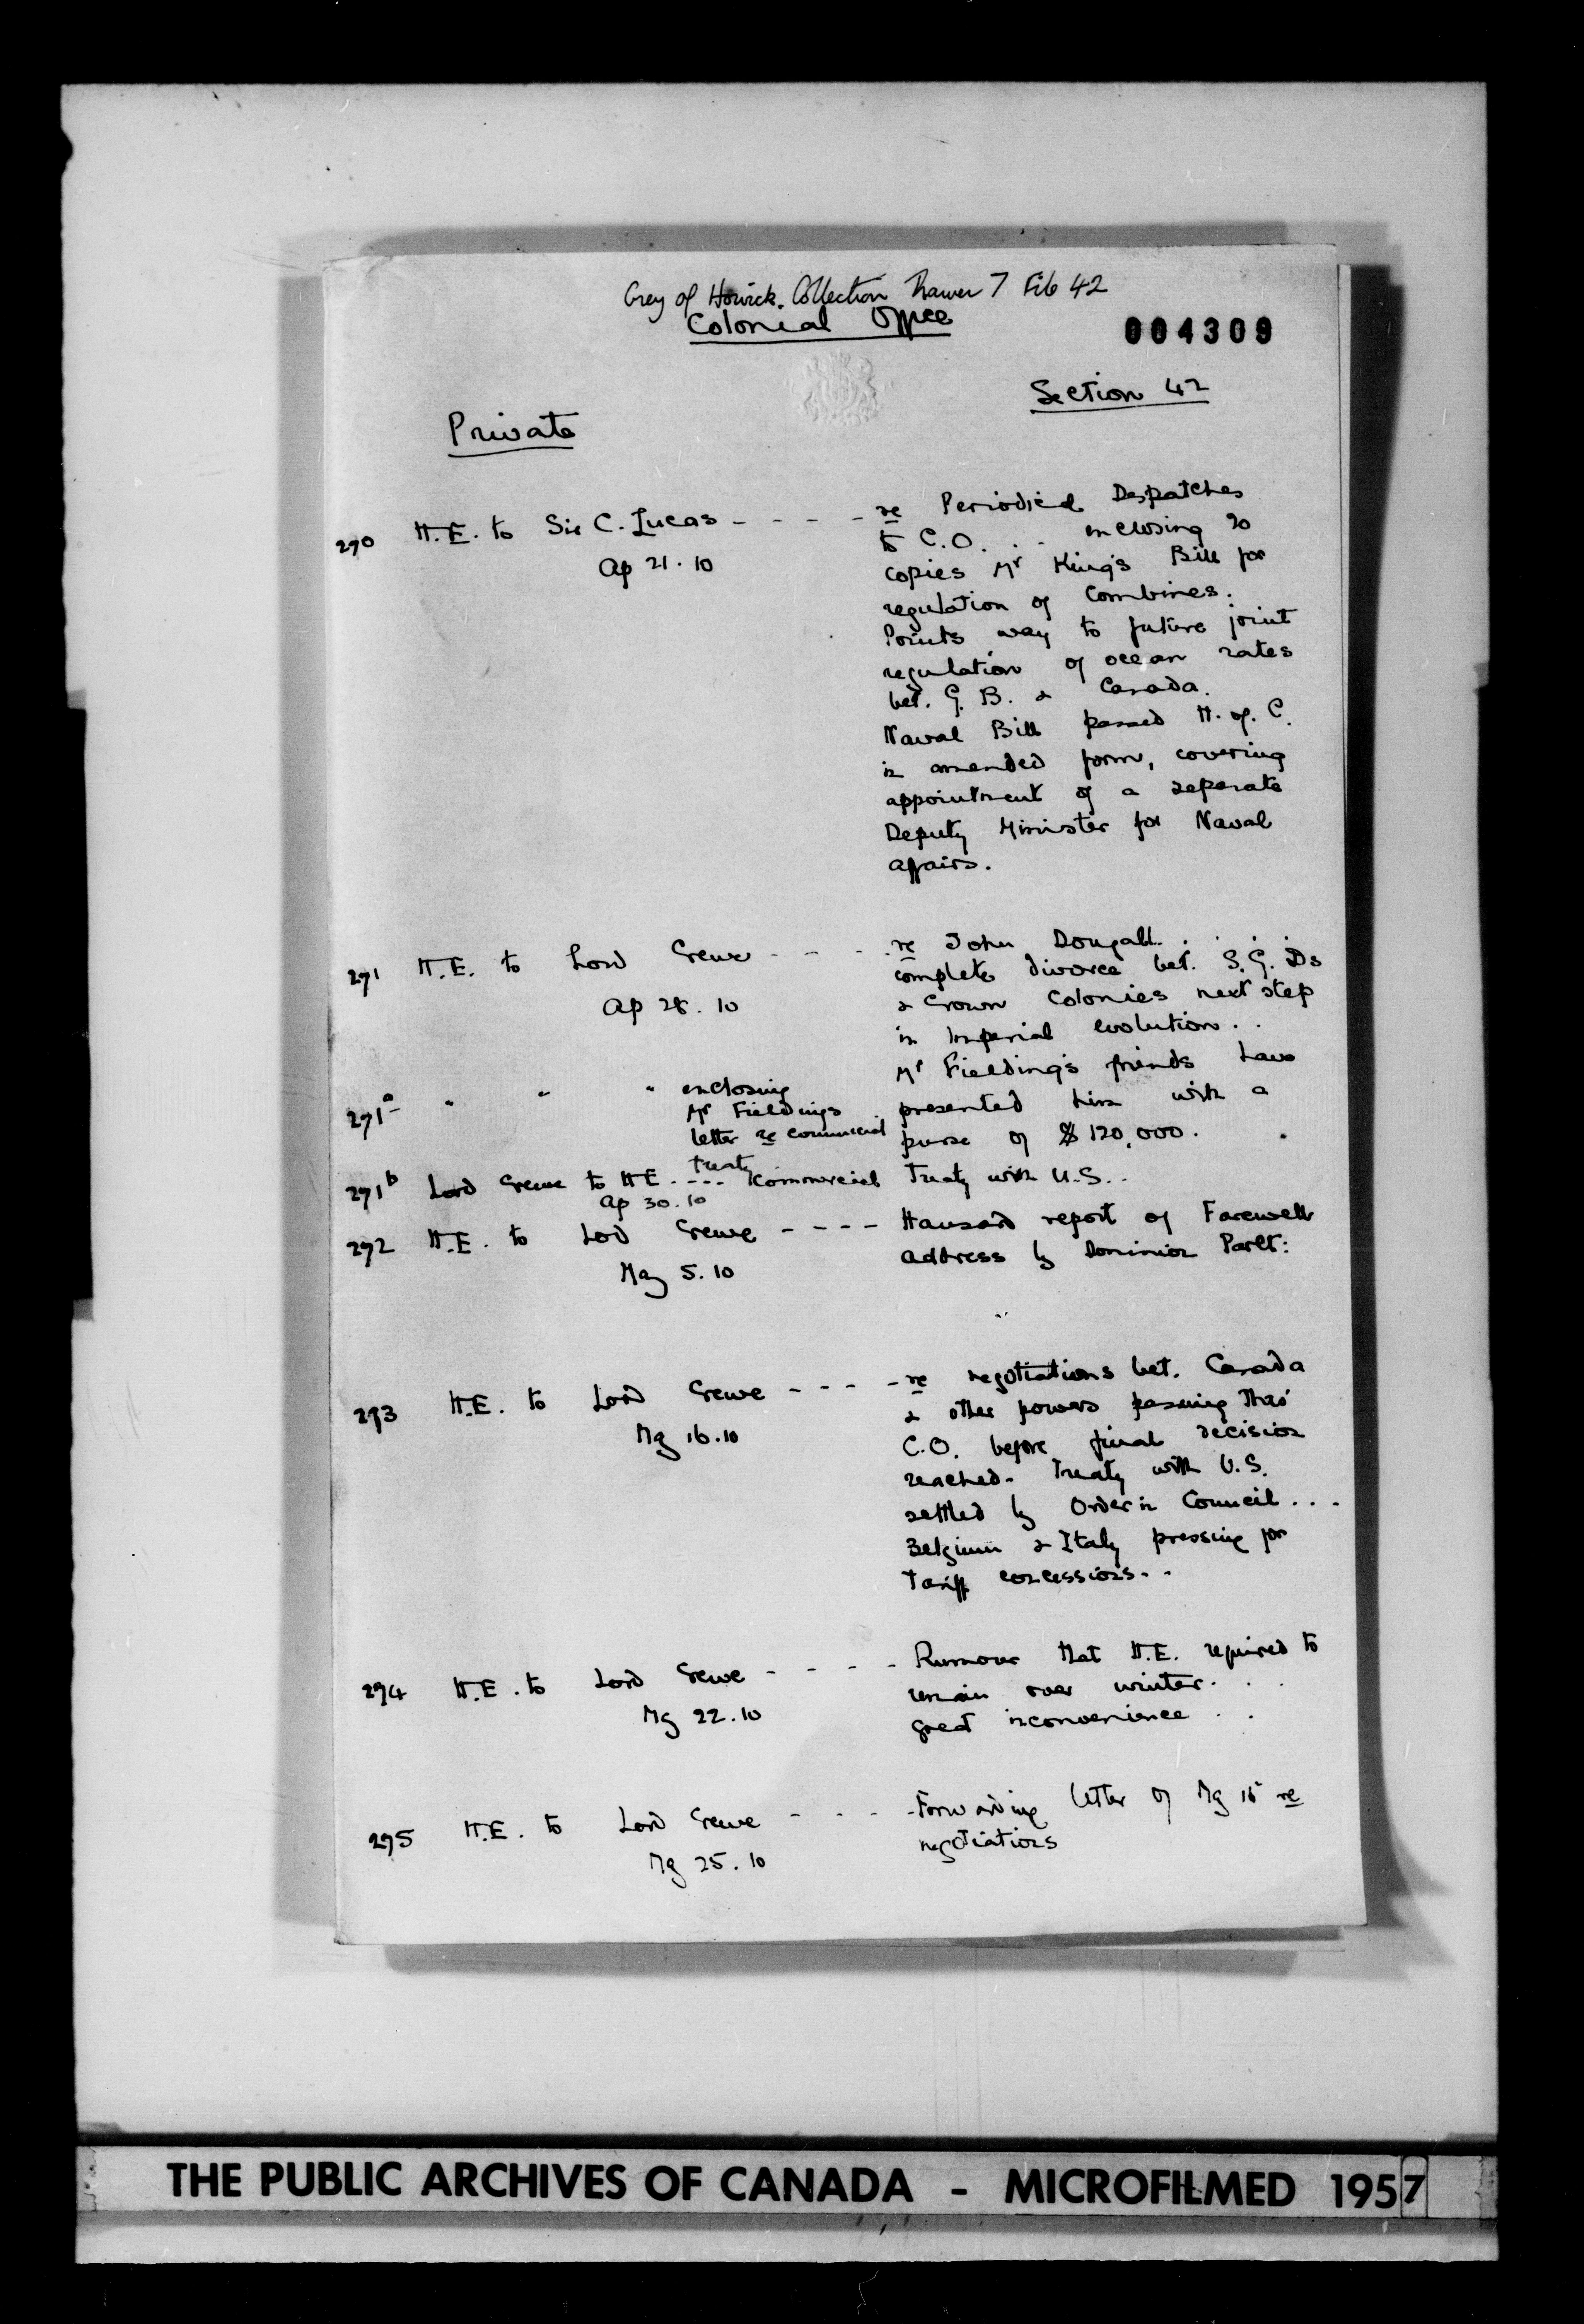 Grey of Howick. Collection Drawer 7 File 42
Colonial Office
004309
Section 42
Private
290 H.E. to Sir C. Lucas - - - - re Periodical Despatches
Ap 21. 10
to C.O. . - enclosing 20
copies Mr King's Bill for
regulation of Combines.
Points way to future joint
regulation of ocean rates
bet. G. B. & Canada.
Naval Bill passed H. of. C.
in amended form, covering
appointment of a separate
Deputy Minister for Naval
affairs.
291 H.E. to Lord Crewe - - - re John Dougall. . . .
Ap 28. 10
complete divorce bet. S. G. Ds
& Crown Colonies next step
in Imperial evolution . .
Mr Fielding's friends have
presented him with a
purse of $120,000.
291a " " " enclosing
Mr Fieldings
letter re commercial
treaty
291b Lord Crewe to H.E. - - - Commercial Treaty with U.S. . .
Ap 30. 10
292 H.E. to Lord Crewe - - - - Hansard report of Farewell
May 5. 10
address by Dominion Parlt:
293 H.E. to Lord Crewe - - - - re negotiations bet. Canada
My 16.10
& other powers passing thro'
C.O. before final decision
reached. Treaty with U.S.
settled by Order in Council . . . .
Belgium & Italy pressing for
tariff concessions. . .
294 H.E. to Lord Crewe - - - - Rumour that H.E. required to
My 22.10
remain over winter. . .
great inconvenience . .
295 H.E. to Lord Crewe - - - - Forwarding letter of My 16 re
My 25.10
negotiations
THE PUBLIC ARCHIVES OF CANADA - MICROFILMED 1957